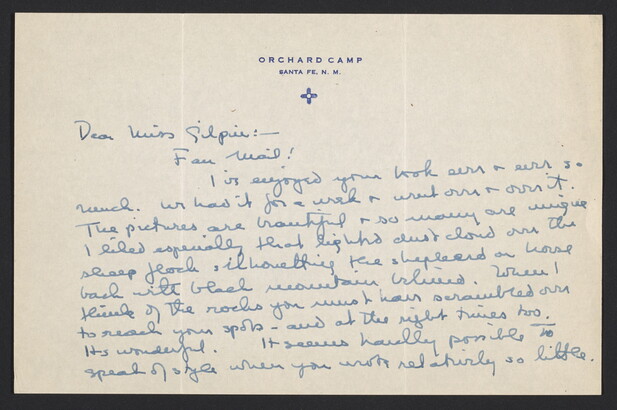 ORCHARD CAMP
SANTA FE, N. M.
Dear Miss Gilpin:—
Fan Mail!
I've enjoyed your book ever & ever so
much. We had it for a week & went over & over it.
The pictures are beautiful & so many are unique
I liked especially that lighted dust cloud over the
sheep flock silhouetting the shepherd on horse
back with black mountain behind. When I
think of the rocks you must have scrambled over
to reach your spots - and at the right times too.
Its wonderful. It seems hardly possible to
speak of style when you wrote relatively so little.